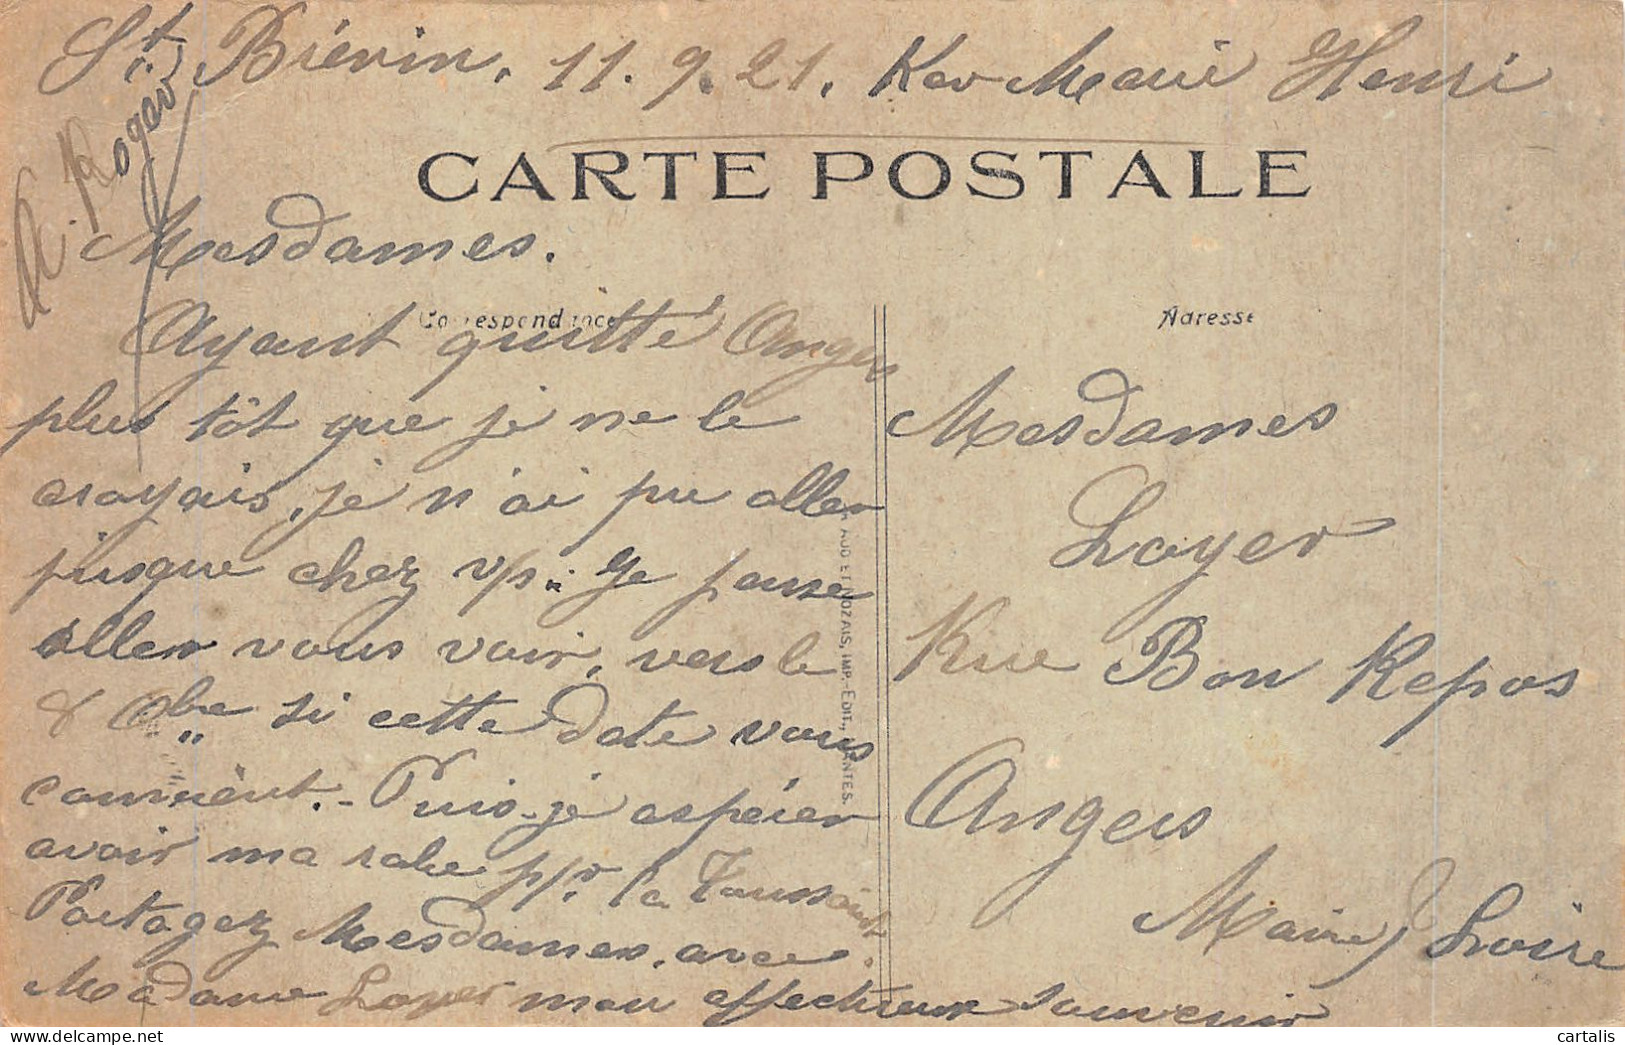 St Brévin, 11.9.21. Ker Marie Henri
A. Roger
CARTE POSTALE
Mesdames.
Correspondance
Adresse
Ayant quitté Angers
plus tôt que je ne le
croyais, je n'ai pu aller
jusque chez vs. Je pense
aller vous voir, vers le
8 8bre si cette date vous
convient. - Puis-je espérer
avoir ma robe pr la Toussaint
Partagez Mesdames, avec
Madame Loyer mon affectueux souvenir
Mesdames
Loyer
Rue Bon Repos
Angers
Maine & Loire
NOZAIS, IMP.-EDIT., NANTES.
cartalis